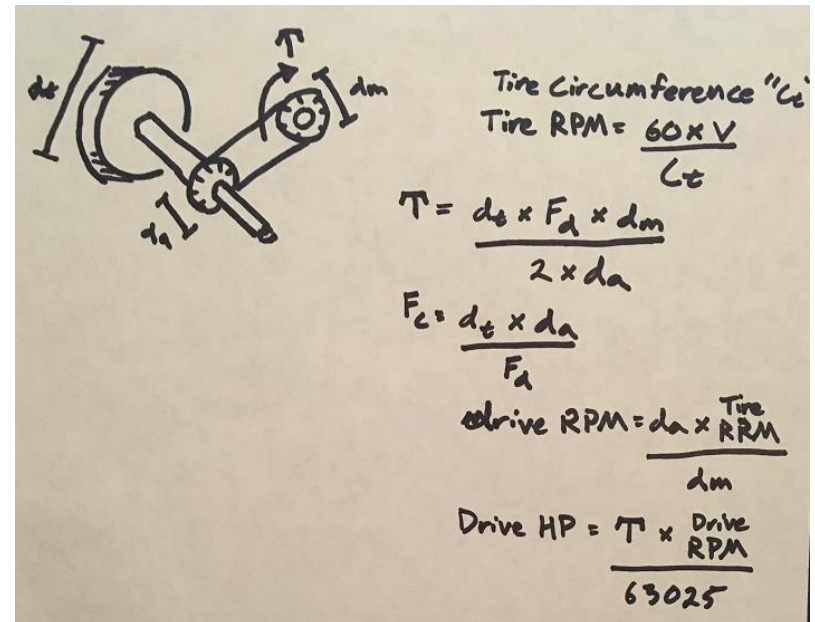 T
dt
dm
da
Tire Circumference "Ct"
Tire RPM = 60 x V
Ct
T = dt x Fd x dm
2 x da
Fc = dt x da
Fd
drive RPM = da x Tire RRM
dm
Drive HP = T x Drive RPM
63025